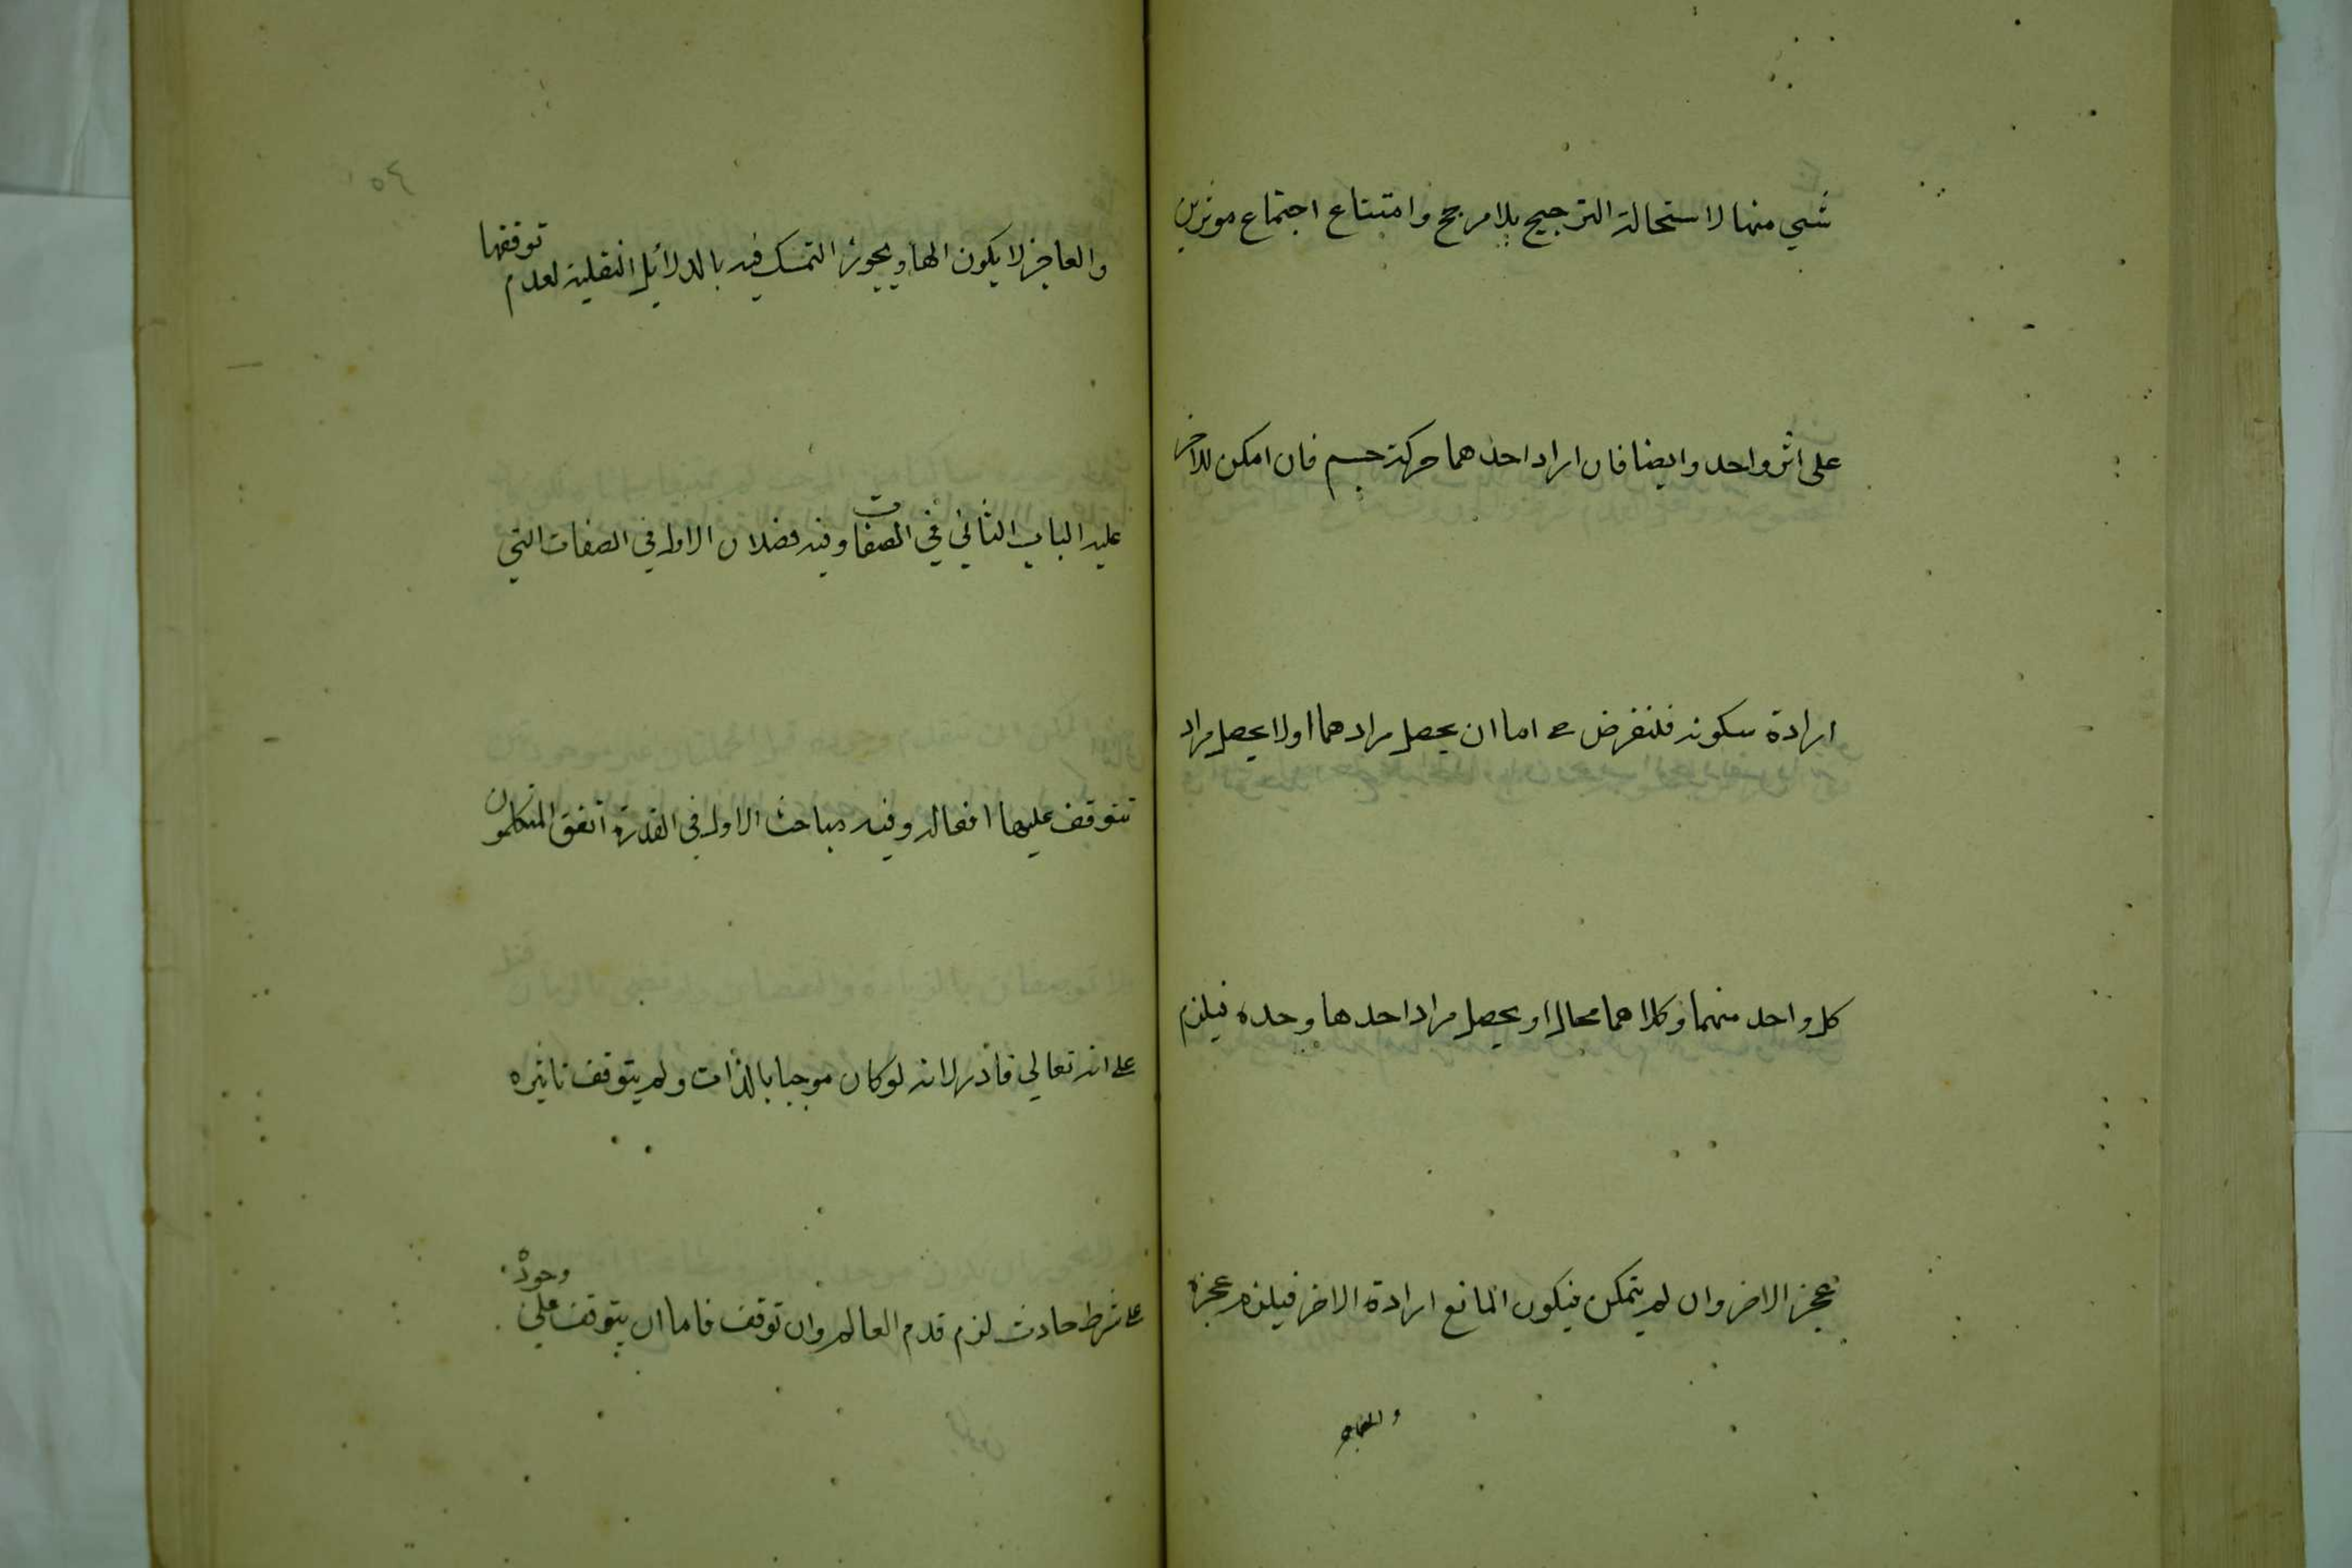 شي منها لاستحالة الترجيح بلا مرجح وامتناع اجتماع موثرين
على اثر واحد وايضا فان اراد احدهما حركة جسم فان امكن للاخر
ارادة سكونه فلنفرض ح اما ان يحصل مرادهما اولا يحصل مراد
كل واحد منهما وكلاهما محال او يحصل مراد احدها وحده فيلزم
عجز الاخر وان لم يتمكن فيكون المانع ارادة الاخر فيلزم عجزه
والعاجز
والعاجز لا يكون الها ويجوز التمسك فيه بالدلائل النقلية لعدم توقفها
عليه الباب الثاني في الصفات وفيه فصلان الاول في الصفات التي
تتوقف عليها افعاله وفيه مباحث الاول في القدرة اتفق المتكلمون
على انه تعالي قادر لانه لو كان موجبا بالذات ولم يتوقف تاثيره
على شرط حادث لزم قدم العالم وان توقف فاما ان يتوقف علي وجوده